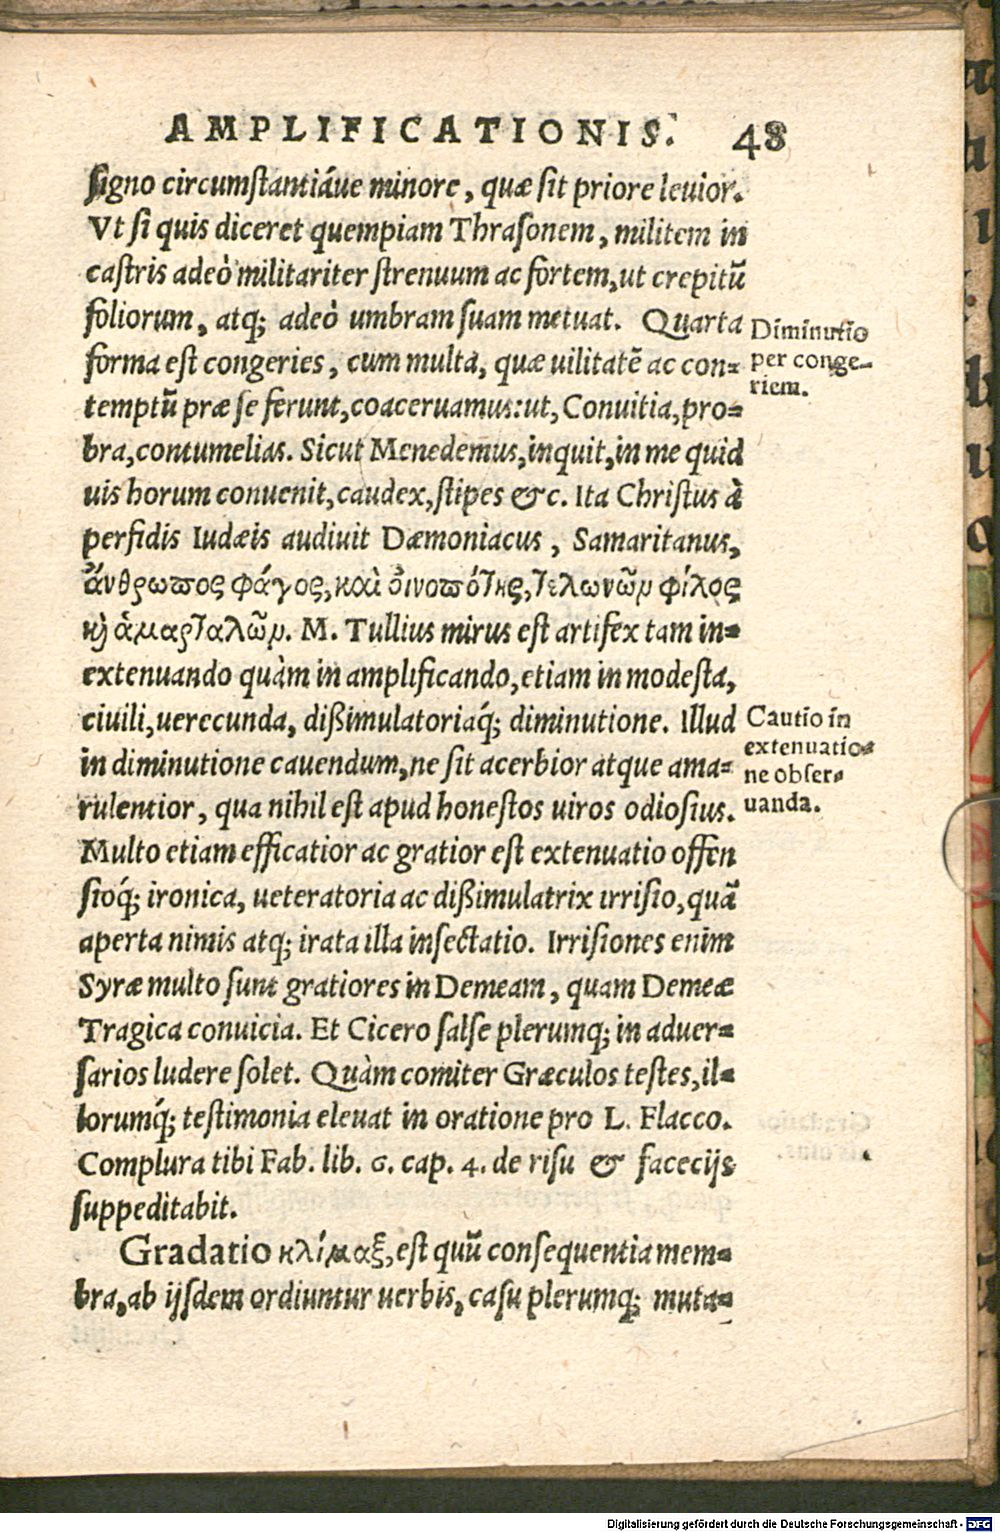 AMPLIFICATIONIS. 48
signo circumstantiáue minore, quæ sit priore leuior.
Vt si quis diceret quempiam Thrasonem, militem in
castris adeò militariter strenuum ac fortem, ut crepitũ
foliorum, atq; adeò umbram suam metuat. Quarta
forma est congeries, cum multa, quæ uilitatẽ ac con-
temptũ præ se ferunt, coaceruamus: ut, Conuitia, pro-
bra, contumelias. Sicut Menedemus, inquit, in me quid
uis horum conuenit, caudex, stipes &c. Ita Christus à
perfidis Iudæis audiuit Dæmoniacus, Samaritanus,
ἄνθρωπος φάγος, καὶ οἰνοπότης, τελωνῶν φίλος
κὴ ἁμαρταλῶν. M. Tullius mirus est artifex tam in-
extenuando quàm in amplificando, etiam in modesta,
ciuili, uerecunda, dißimulatoriaq́; diminutione. Illud
in diminutione cauendum, ne sit acerbior atque ama-
rulentior, qua nihil est apud honestos uiros odiosius.
Multo etiam efficatior ac gratior est extenuatio offen
sioq́; ironica, ueteratoria ac dißimulatrix irrisio, quã
aperta nimis atq; irata illa insectatio. Irrisiones enim
Syræ multo sunt gratiores in Demeam, quam Demeæ
Tragica conuicia. Et Cicero salse plerumq; in aduer-
sarios ludere solet. Quàm comiter Græculos testes, il-
lorumq́; testimonia eleuat in oratione pro L. Flacco.
Complura tibi Fab. lib. 6. cap. 4. de risu & facecijs
suppeditabit.
Gradatio κλίμαξ, est quũ consequentia mem-
bra, ab ijsdem ordiuntur uerbis, casu plerumq; muta-
Diminutio
per conge-
riem.
Cautio in
extenuatio-
ne obser-
uanda.
Digitalisierung gefördert durch die Deutsche Forschungsgemeinschaft - DFG